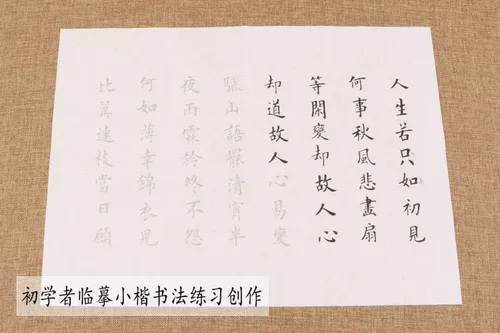 人生若只如初見
何事秋風悲畫扇
等閑變却故人心
却道故人心易變
驪山語罷清宵半
夜雨霖鈴終不怨
何如薄幸錦衣兒
比翼連枝當日願
初学者临摹小楷书法练习创作